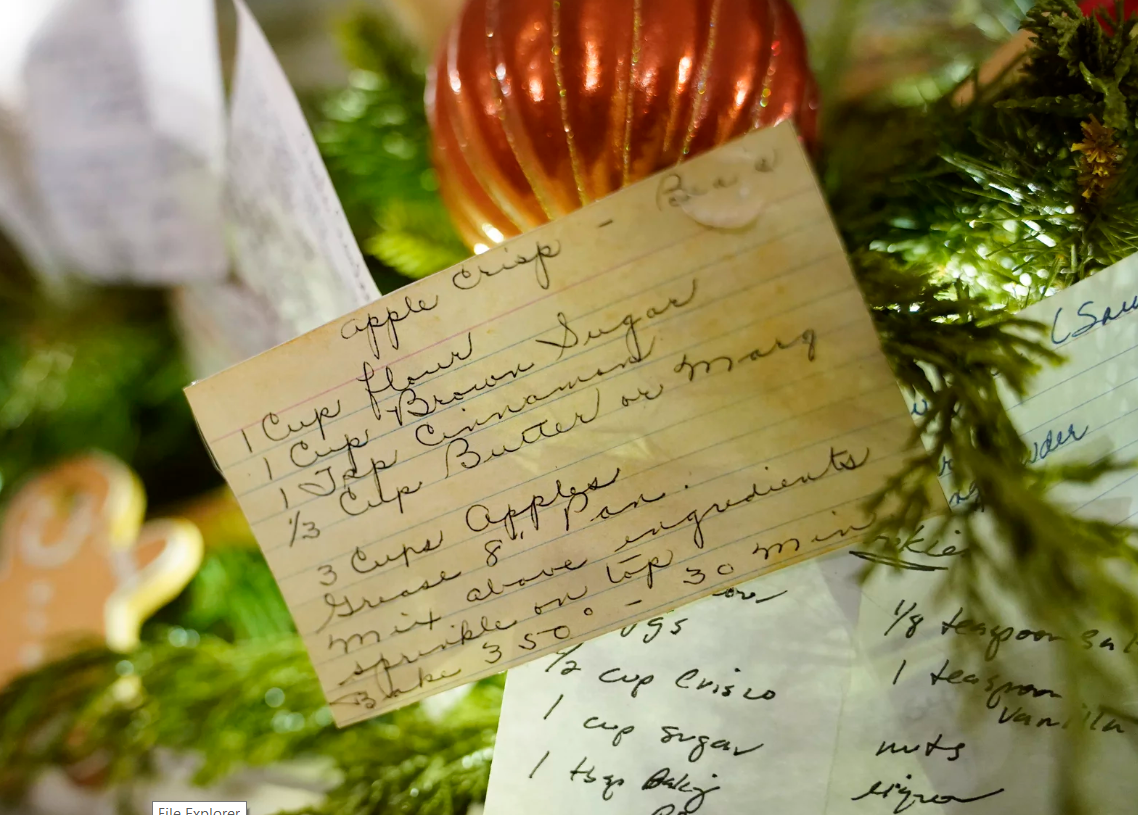 apple Crisp -
1 Cup flour
1 Cup Brown Sugar
1 Tsp Cinnamon
1/3 Cup Butter or Marg
3 Cups Apples
Grease 8" Pan.
Mix above ingredients
sprinkle on top
Bake 350° - 30 min
1/2 cup Crisco
1 cup sugar
1 tbsp Baking
1/8 teaspoon
1 teaspoon
Vanilla
nuts
File Explorer